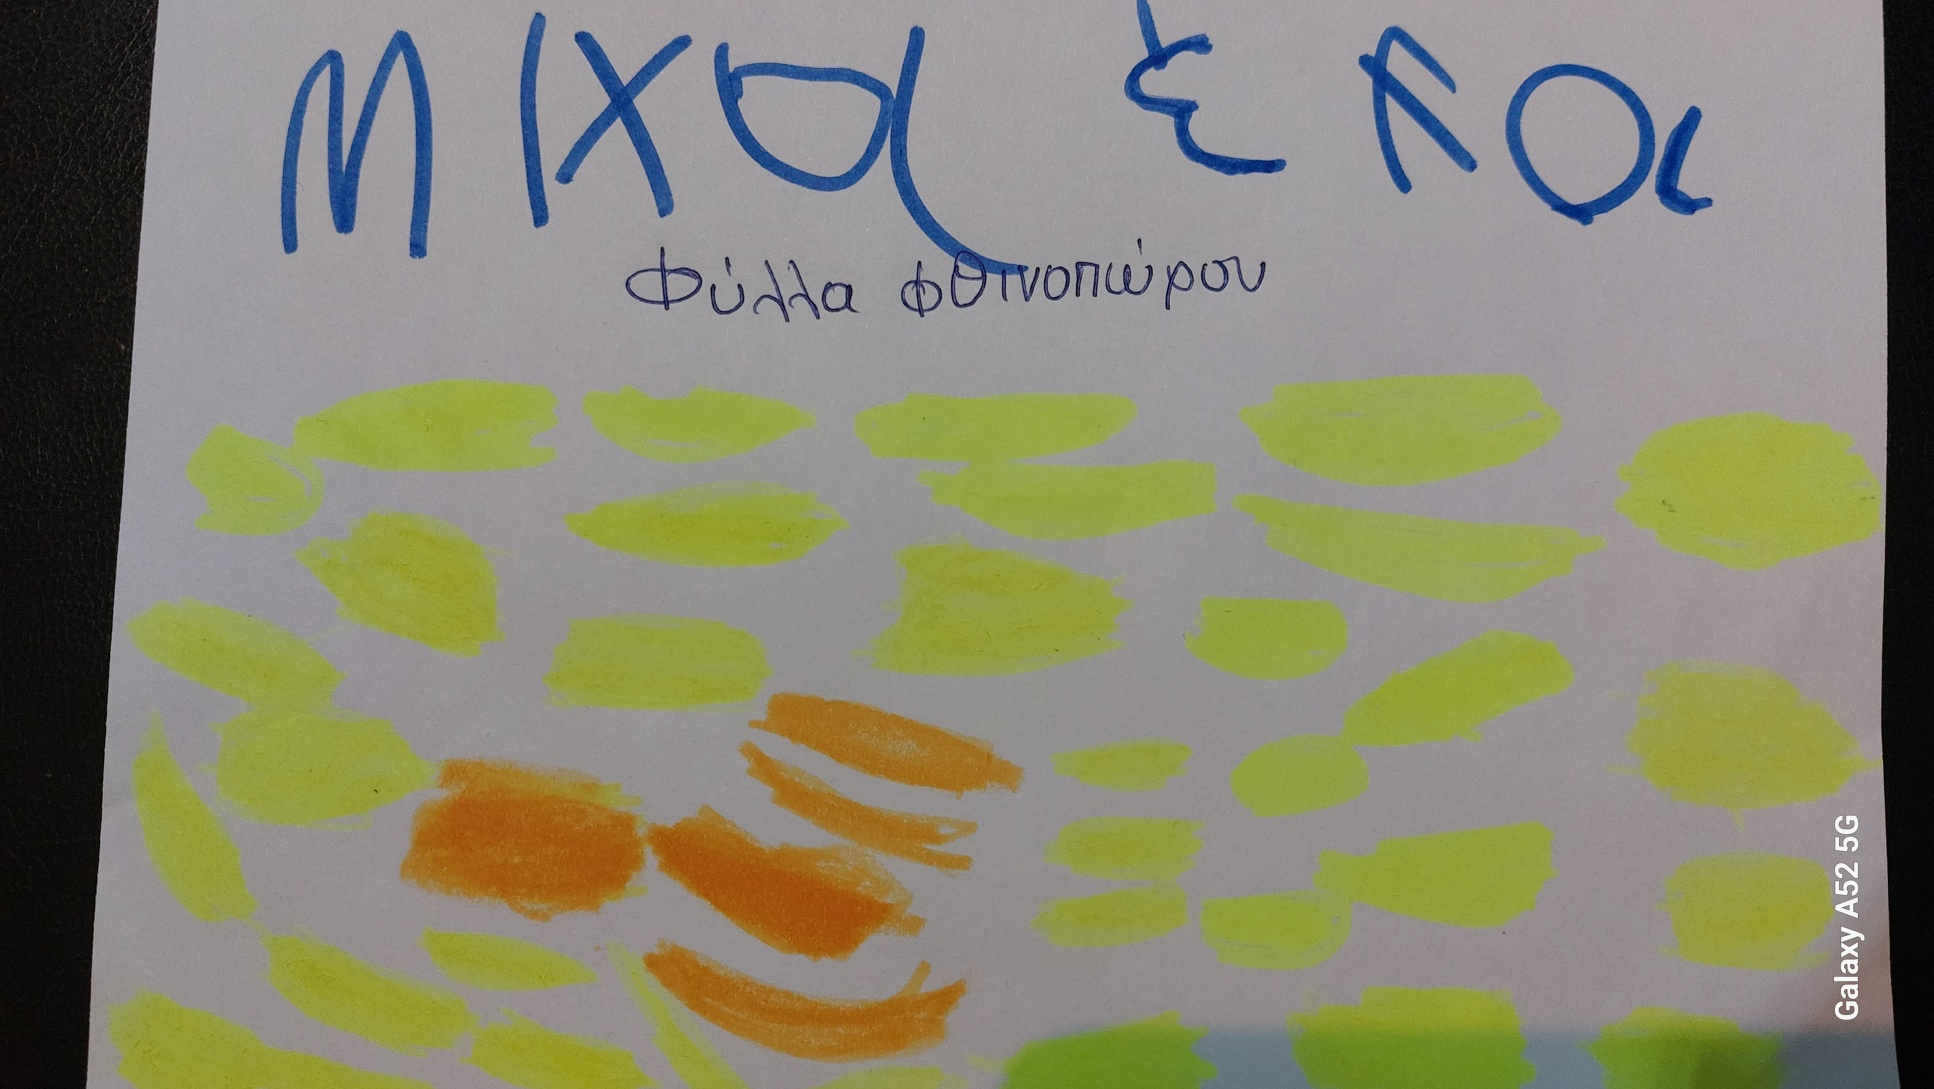 ΜΙΧα ξ ΛΟι
Φύλλα φθινοπώρου
Galaxy A52 5G